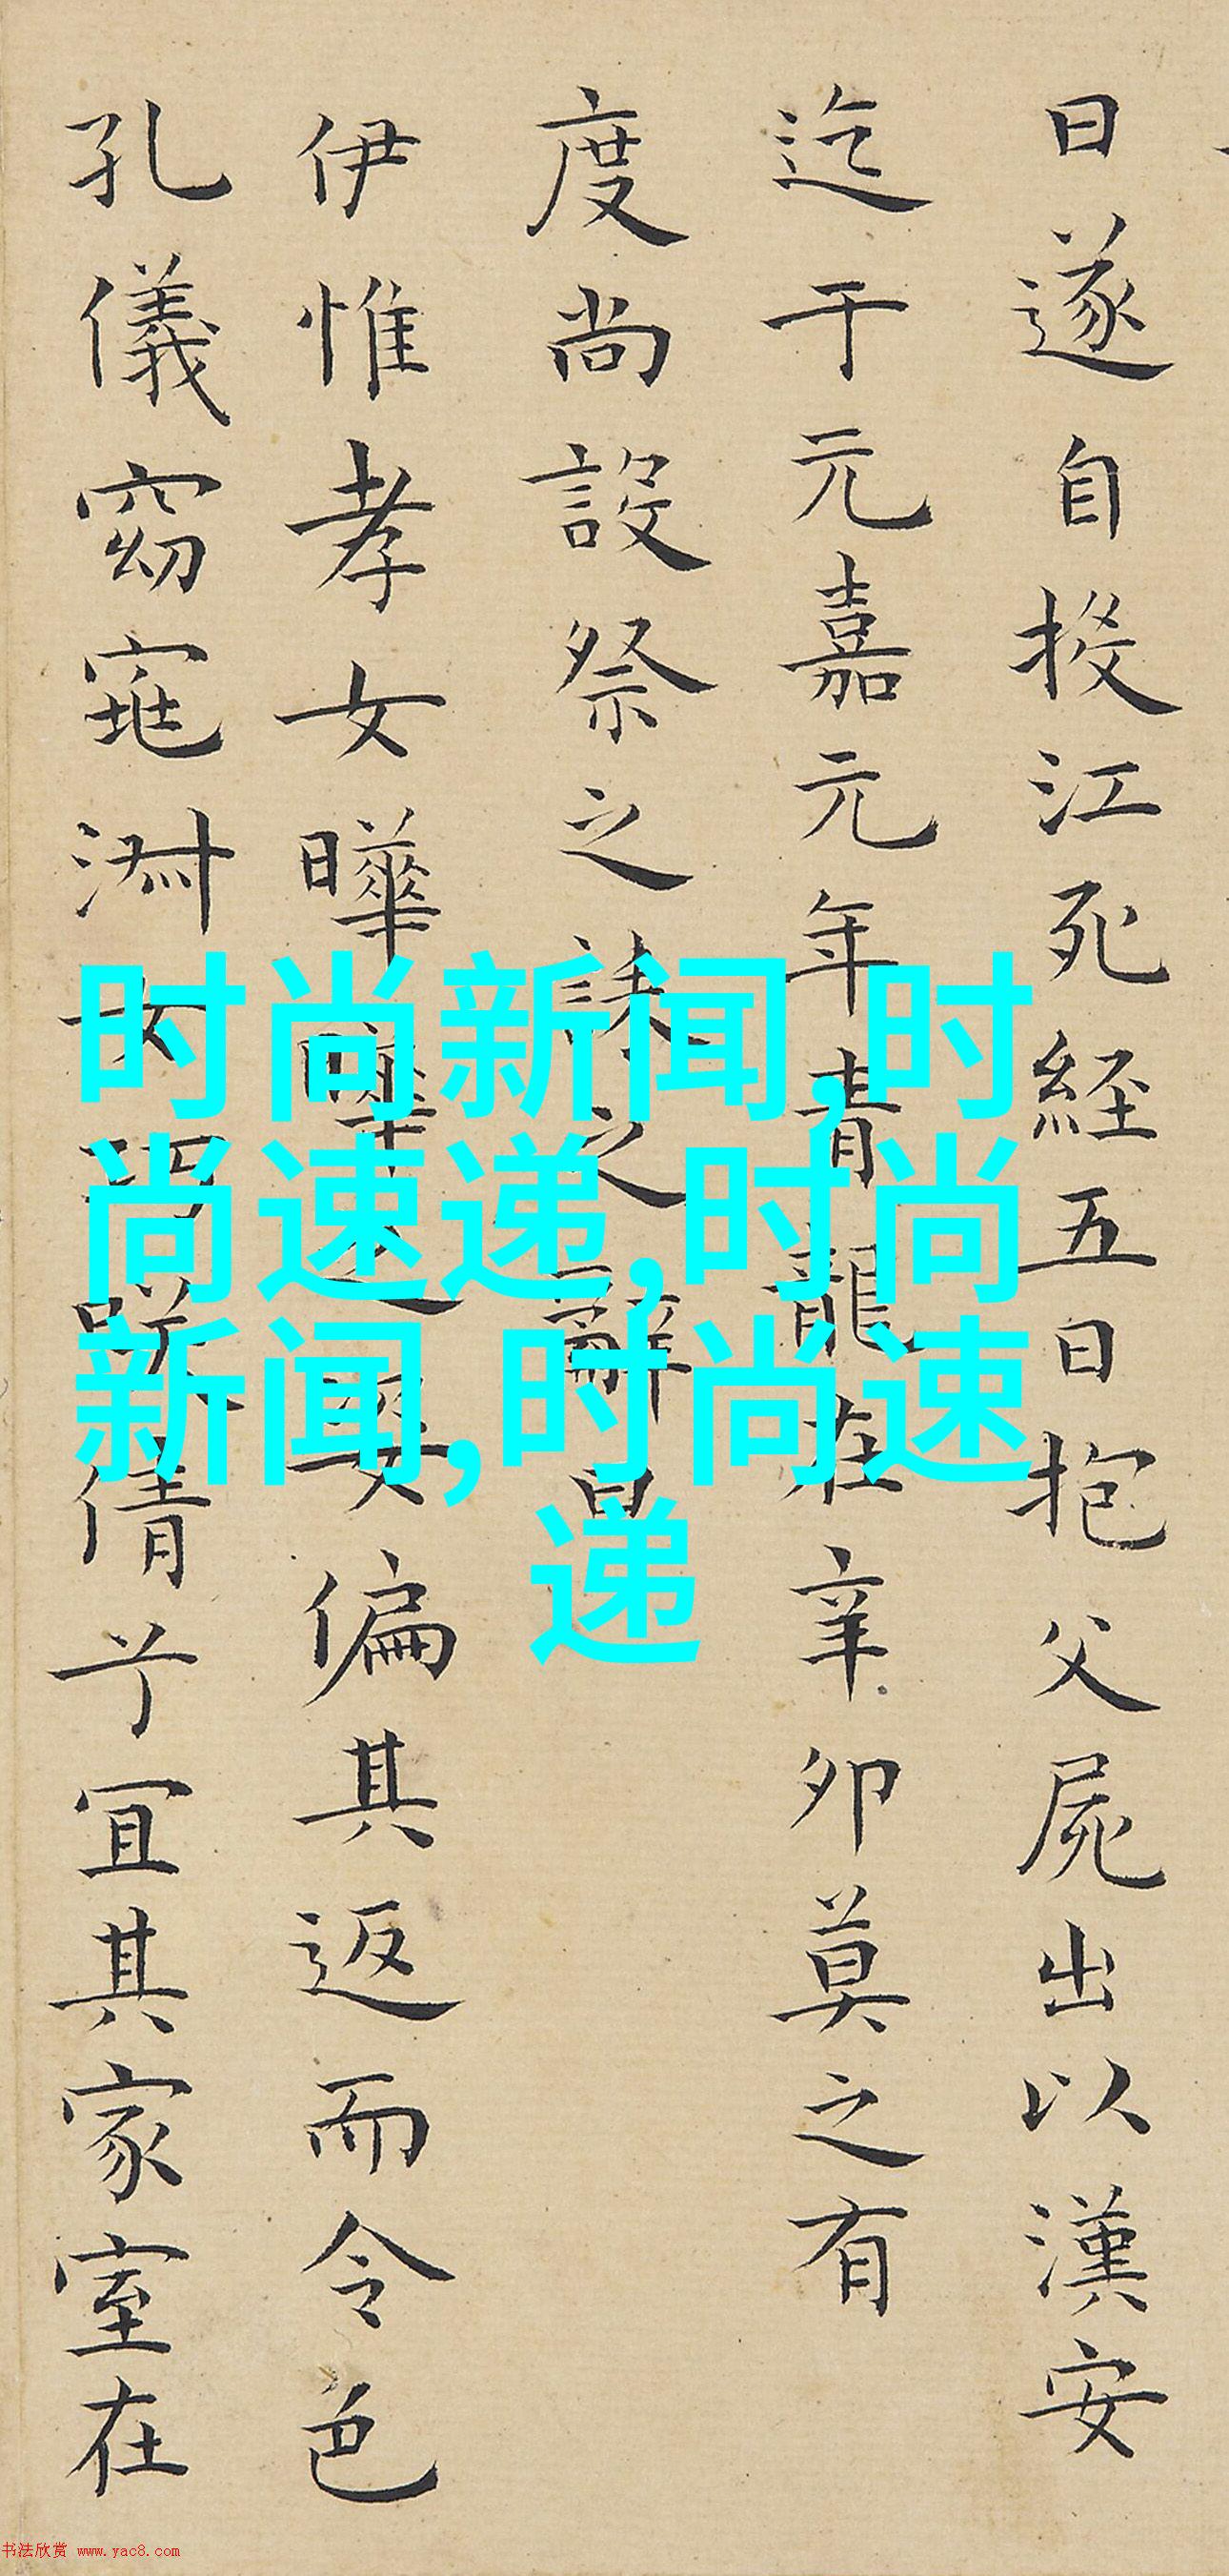 日遂自投江死経五日抱父屍出以漢安
迄于元嘉元年青龍在辛卯莫之有
度尚設祭之誄之辭曰
伊惟孝女曄曄之姿偏其返而令色
孔儀窈窕淑女巧笑倩兮宜其家室在
时尚新闻,时
尚速递,时尚
新闻,时尚速
递
书法欣赏 www.yac8.com